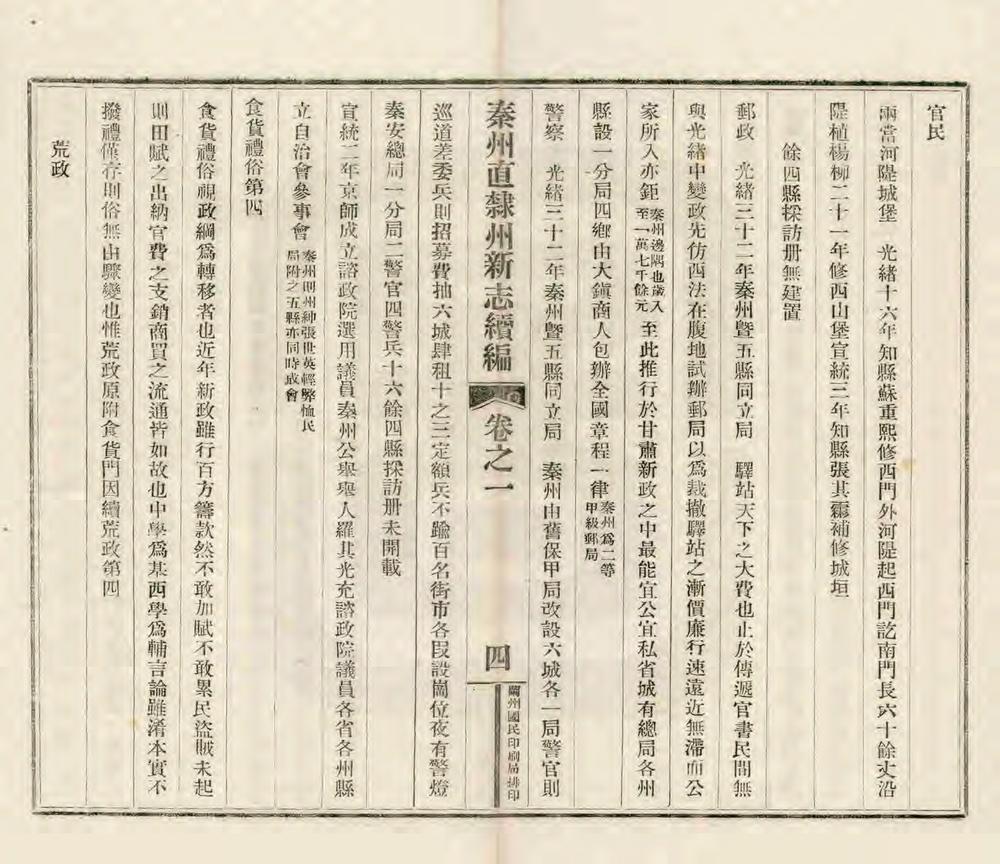 官民
兩當河隄城堡　光緒十六年知縣蘇重熙修西門外河隄起西門訖南門長六十餘丈沿
隄植楊柳二十一年修西山堡宣統三年知縣張其霖補修城垣
餘四縣採訪册無建置
郵政　光緒三十二年秦州曁五縣同立局　驛站天下之大費也止於傳遞官書民間無
與光緒中變政先仿西法在腹地試辦郵局以爲裁撤驛站之漸價廉行速遠近無滯而公
家所入亦鉅秦州邊隅也歲入至一萬七千餘元至此推行於甘肅新政之中最能宜公宜私省城有總局各州
縣設一分局四鄕由大鎭商人包辦全國章程一律秦州爲二等甲級郵局
警察　光緒三十二年秦州曁五縣同立局　秦州由舊保甲局改設六城各一局警官則
秦州直隸州新志續編　卷之一　四　蘭州國民印刷局排印
巡道差委兵則招募費抽六城肆租十之三定額兵不踰百名街市各段設崗位夜有警燈
秦安總局一分局二警官四警兵十六餘四縣採訪册未開載
宣統二年京師成立諮政院選用議員秦州公舉舉人羅其光充諮政院議員各省各州縣
立自治會參事會秦州則州紳張世英輕弊恤民局附之五縣亦同時成會
食貨禮俗第四
食貨禮俗視政綱爲轉移者也近年新政雖行百方籌款然不敢加賦不敢累民盜賊未起
則田賦之出納官費之支銷商買之流通皆如故也中學爲基西學爲輔言論雖淆本實不
撥禮僅存則俗無由驟變也惟荒政原附食貨門因續荒政第四
荒政